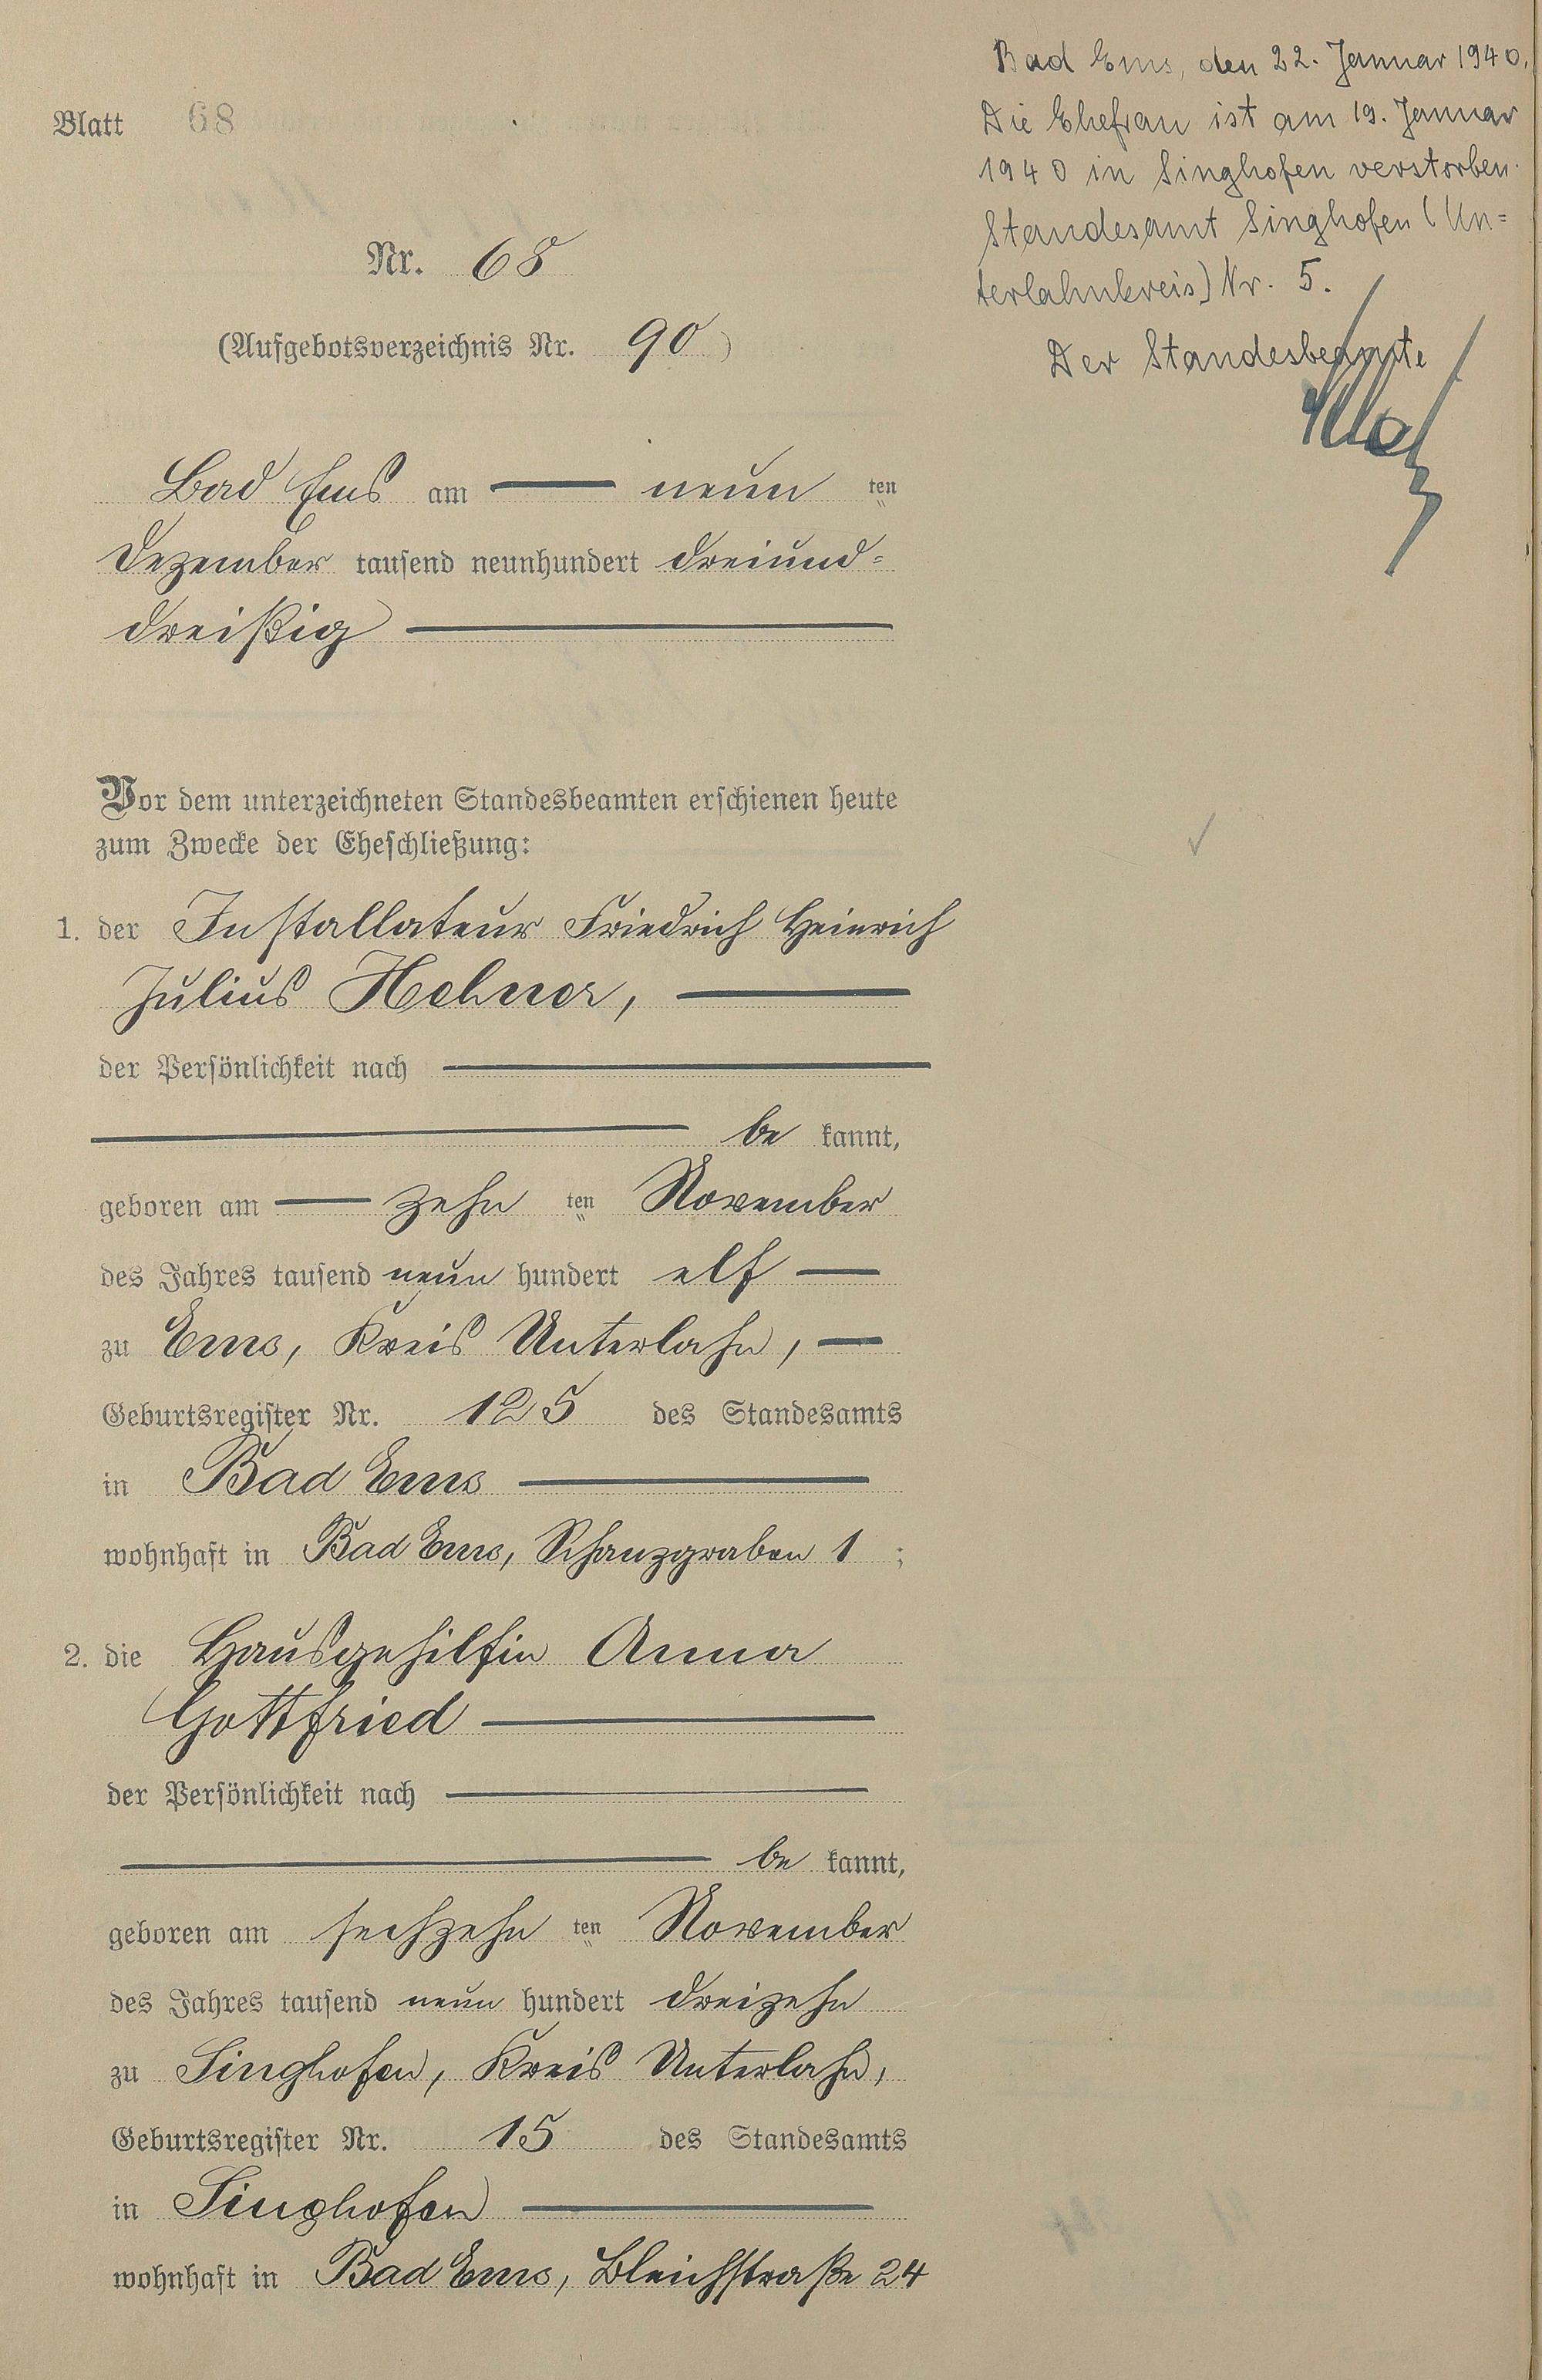 Blatt 68
Nr. 68
(Aufgebotsverzeichnis Nr. 90)
Bad Ems am neun ten
Dezember tausend neunhundert dreiund=
dreißig
Vor dem unterzeichneten Standesbeamten erschienen heute
zum Zwecke der Eheschließung:
1. der Installateur Friedrich Heinrich
Julius Hehner,
der Persönlichkeit nach
be kannt,
geboren am zehn ten November
des Jahres tausend neun hundert elf
zu Ems, Kreis Unterlahn,
Geburtsregister Nr. 125 des Standesamts
in Bad Ems
wohnhaft in Bad Ems, Schanzgraben 1 ;
2. die Hausgehilfin Anna
Gottfried
der Persönlichkeit nach
be kannt,
geboren am sechzehn ten November
des Jahres tausend neun hundert dreizehn
zu Singhofen, Kreis Unterlahn,
Geburtsregister Nr. 15 des Standesamts
in Singhofen
wohnhaft in Bad Ems, Bleichstraße 24
Bad Ems, den 22. Januar 1940.
Die Ehefrau ist am 19. Januar
1940 in Singhofen verstorben.
Standesamt Singhofen (Un=
terlahnkreis) Nr. 5.
Der Standesbeamte